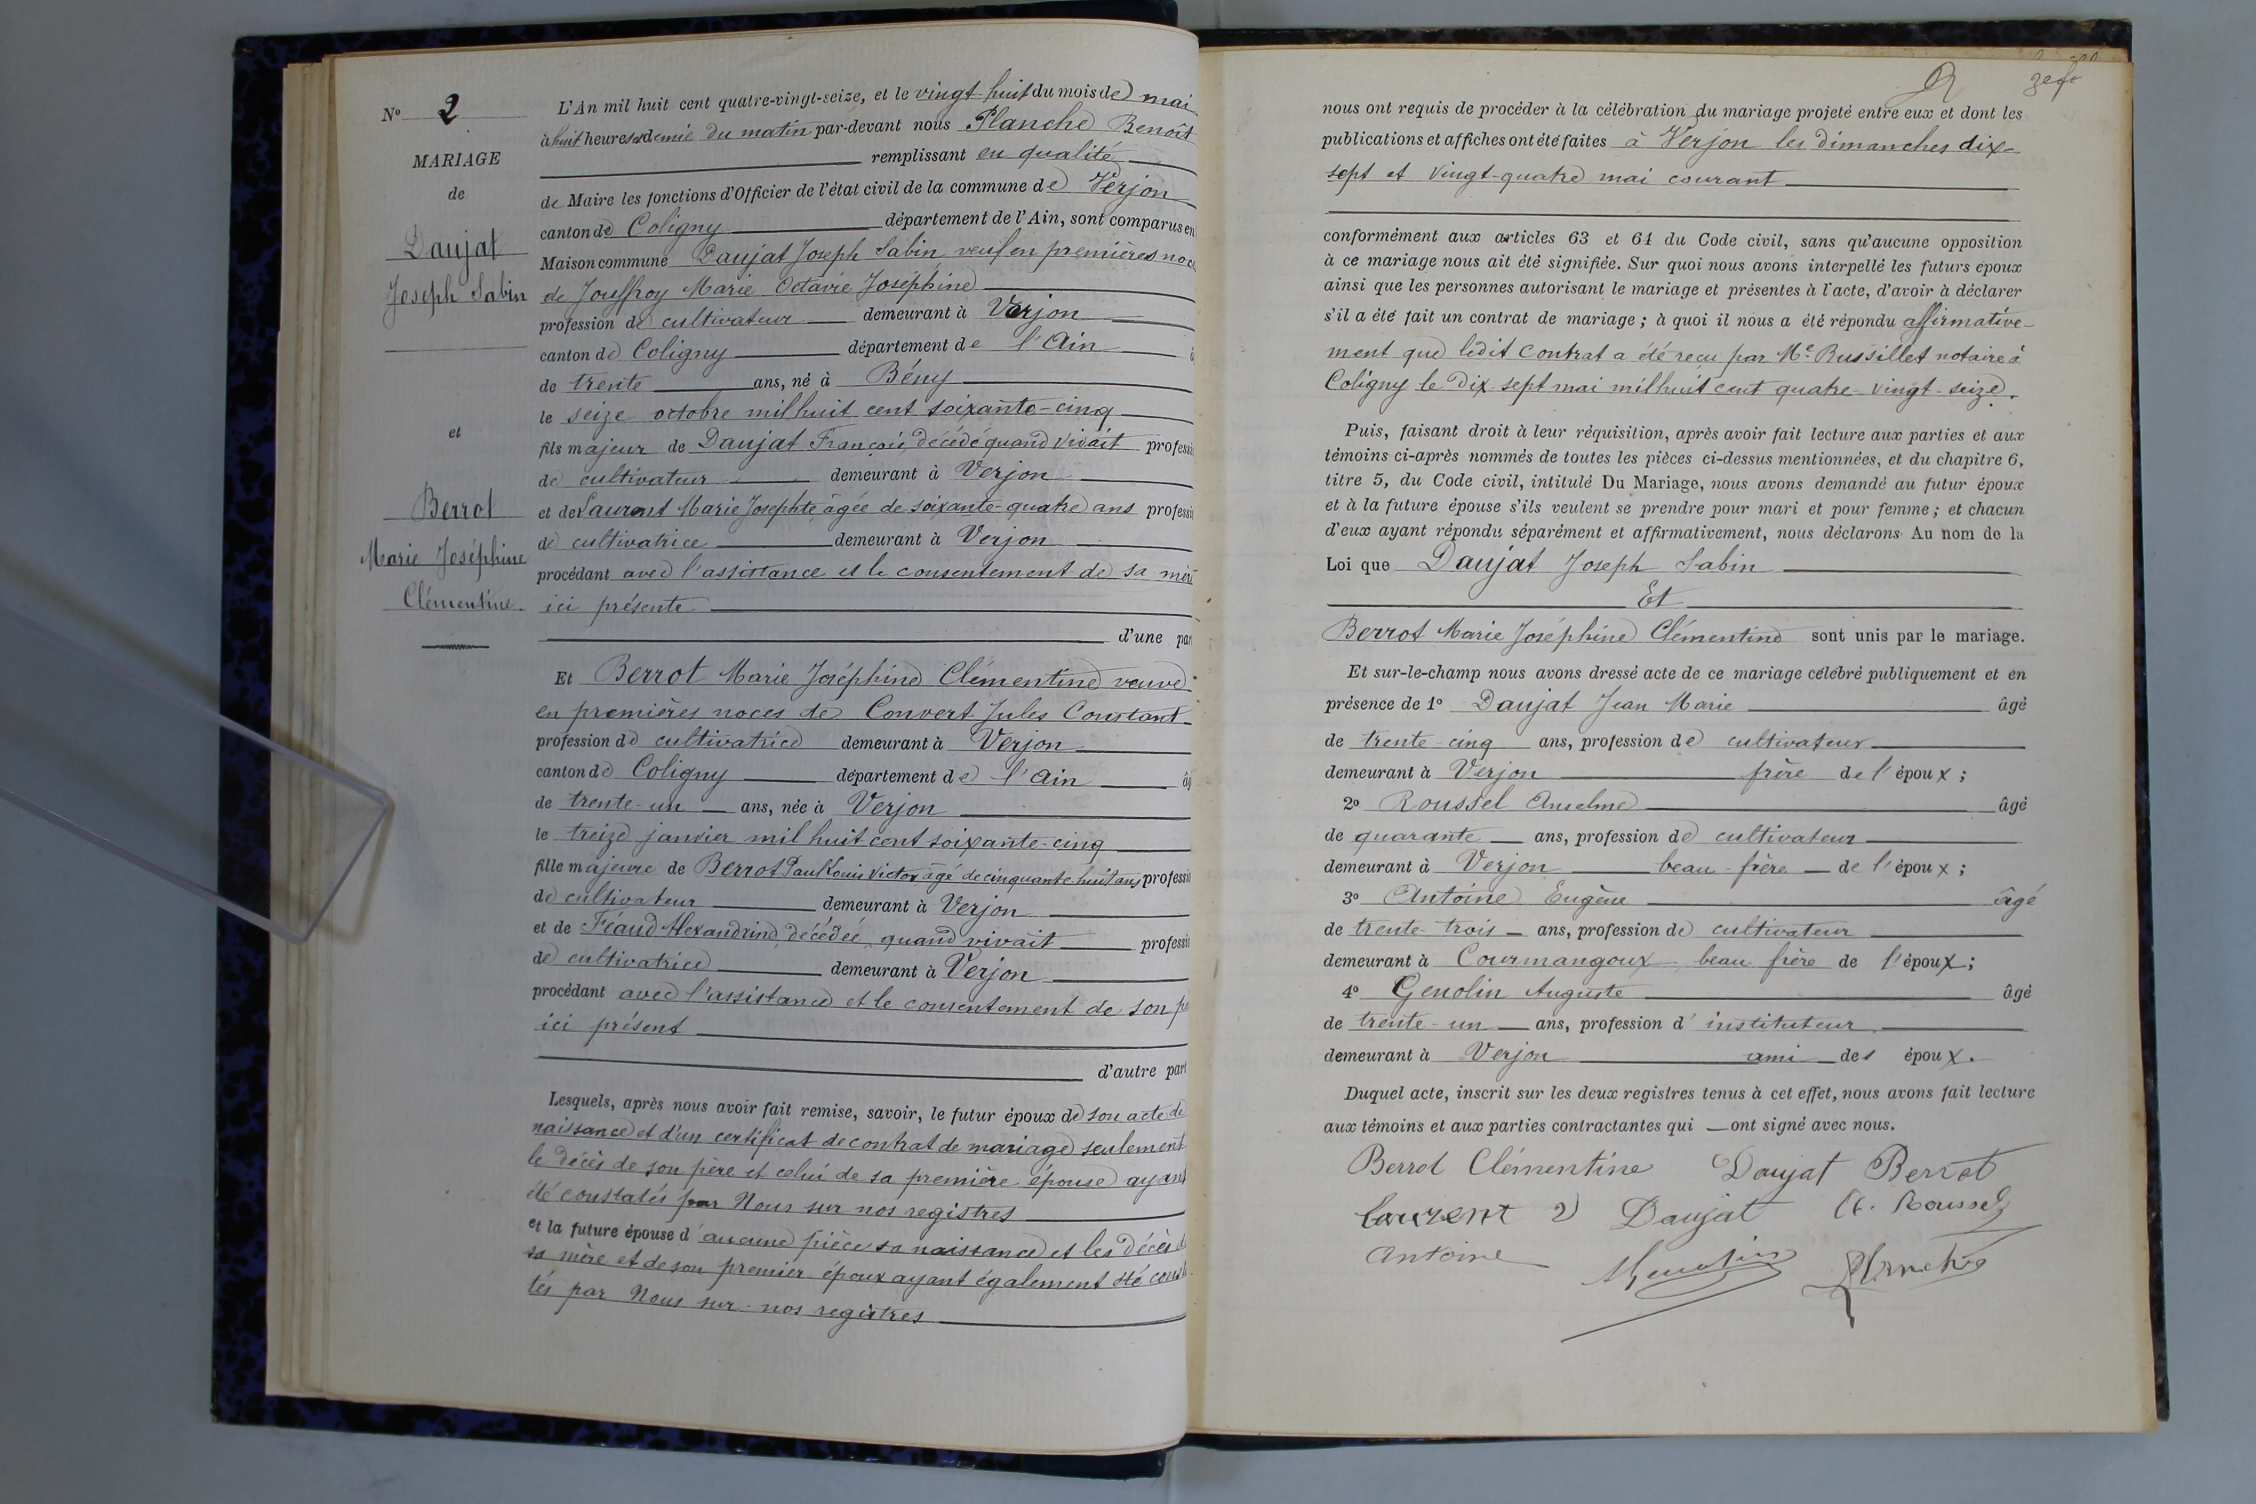 N° 2
MARIAGE
de
Daujat
Joseph Sabin
et
Berrot
Marie Joséphine
Clémentine.
L'An mil huit cent quatre-vingt-seize, et le vingt-huit du mois de mai
à huit heures et demie du matin par-devant nous Planche Benoît
remplissant en qualité
de Maire les fonctions d'Officier de l'état civil de la commune de Verjon
canton de Coligny département de l'Ain, sont comparus en
Maison commune Daujat Joseph Sabin veuf en premières noces
de Jouffroy Marie Octavie Joséphine
profession de cultivateur demeurant à Verjon
canton de Coligny département de l'Ain
de trente ans, né à Bény
le seize octobre mil huit cent soixante-cinq
fils majeur de Daujat François, décédé quand vivait professi
de cultivateur demeurant à Verjon
et de Laurent Marie Josephte âgée de soixante-quatre ans professi
de cultivatrice demeurant à Verjon
procédant avec l'assistance et le consentement de sa mère
ici présente
d'une part
Et Berrot Marie Joséphine Clémentine veuve
en premières noces de Convert Jules Constant
profession de cultivatrice demeurant à Verjon
canton de Coligny département de l'Ain âg
de trente-un ans, née à Verjon
le treize janvier mil huit cent soixante-cinq
fille majeure de Berrot Paul Louis Victor âgé de cinquante huit ans professi
de cultivateur demeurant à Verjon
et de Féaud Alexandrine, décédée, quand vivait professi
de cultivatrice demeurant à Verjon
procédant avec l'assistance et le consentement de son pè
ici présent
d'autre part
Lesquels, après nous avoir fait remise, savoir, le futur époux de son acte de
naissance et d'un certificat de contrat de mariage seulement
le décès de son père et celui de sa première épouse ayant
été constatés par Nous sur nos registres
et la future épouse d'aucune pièce sa naissance et les décès de
sa mère et de son premier époux ayant également été consta
tés par Nous sur nos registres
nous ont requis de procéder à la célébration du mariage projeté entre eux et dont les
publications et affiches ont été faites à Verjon les dimanches dix-
sept et vingt-quatre mai courant
conformément aux articles 63 et 64 du Code civil, sans qu'aucune opposition
à ce mariage nous ait été signifiée. Sur quoi nous avons interpellé les futurs époux
ainsi que les personnes autorisant le mariage et présentes à l'acte, d'avoir à déclarer
s'il a été fait un contrat de mariage ; à quoi il nous a été répondu affirmative-
ment que ledit contrat a été reçu par Me Bussillet notaire à
Coligny le dix-sept mai mil huit cent quatre-vingt-seize.
Puis, faisant droit à leur réquisition, après avoir fait lecture aux parties et aux
témoins ci-après nommés de toutes les pièces ci-dessus mentionnées, et du chapitre 6,
titre 5, du Code civil, intitulé Du Mariage, nous avons demandé au futur époux
et à la future épouse s'ils veulent se prendre pour mari et pour femme ; et chacun
d'eux ayant répondu séparément et affirmativement, nous déclarons Au nom de la
Loi que Daujat Joseph Sabin
Et
Berrot Marie Joséphine Clémentine sont unis par le mariage.
Et sur-le-champ nous avons dressé acte de ce mariage célébré publiquement et en
présence de 1° Daujat Jean Marie âgé
de trente-cinq ans, profession de cultivateur
demeurant à Verjon frère de l'époux ;
2° Roussel Anselme âgé
de quarante ans, profession de cultivateur
demeurant à Verjon beau-frère de l'époux ;
3° Antoine Eugène âgé
de trente-trois ans, profession de cultivateur
demeurant à Courmangoux beau frère de l'époux ;
4° Genolin Auguste âgé
de trente-un ans, profession d'instituteur
demeurant à Verjon ami des époux.
Duquel acte, inscrit sur les deux registres tenus à cet effet, nous avons fait lecture
aux témoins et aux parties contractantes qui ont signé avec nous.
Berrot Clémentine Daujat Berrot
Laurent Daujat A. Roussel
Antoine